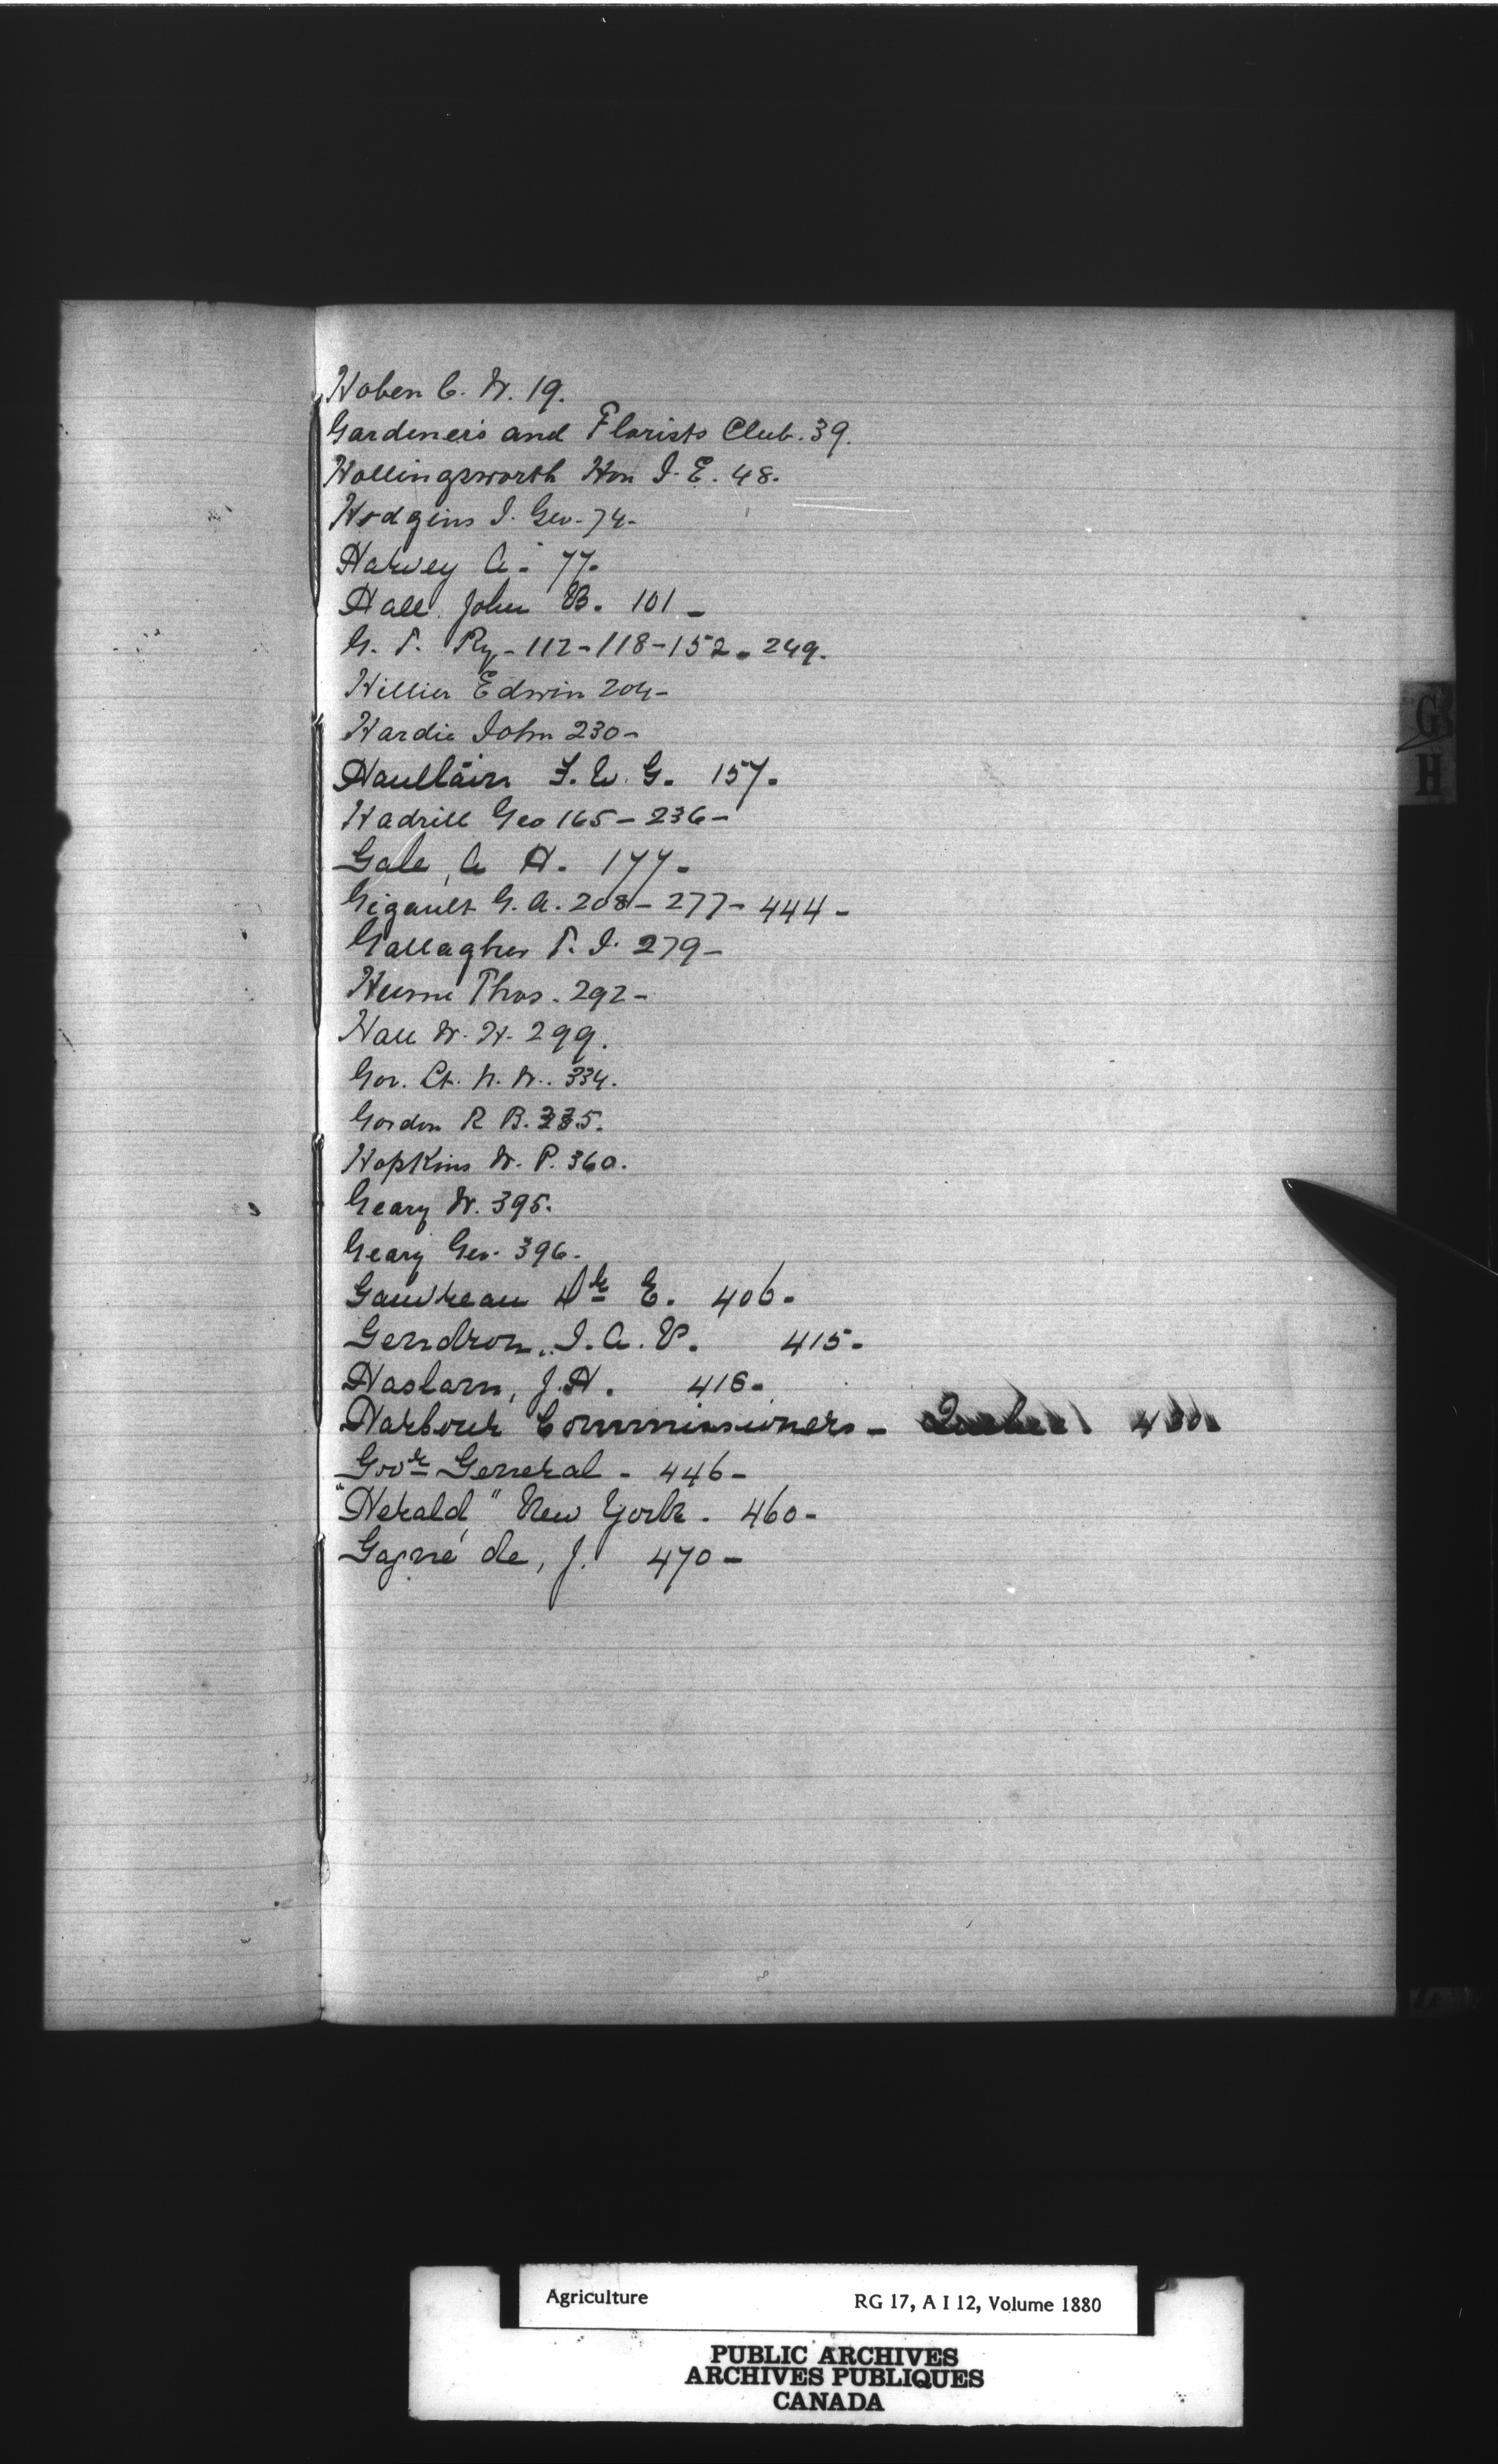 Hoben C. W. 19.
Gardeners and Florists Club. 39.
Hollingsworth Hon J. E. 48.
Hodgins J. Geo. 74-
Harvey A. 77.
Hall John B. 101-
G. T. Ry- 112-118-152-249.
Hillier Edwin 204-
Hardie John 230-
Haultain F. W. G. 157.
Hadrill Geo 165-236-
Gale, A H. 177-
Gigault G. A. 208-277-444-
Gallagher T. J. 279-
Hume Thos. 292-
Hall W. H. 299.
Gov. Lt. N. W. 334.
Gordon R B. 335.
Hopkins W. P. 360.
Geary W. 395.
Geary Geo. 396.
Gauvreau Dr E. 406-
Gendron, J. A. P. 415-
Haslam, J. H. 416-
Harbour Commissioners- Quebec 430
Govr General - 446-
"Herald," New York. 460-
Gagné de, J. 470-
G
H
Agriculture RG 17, A I 12, Volume 1880
PUBLIC ARCHIVES
ARCHIVES PUBLIQUES
CANADA